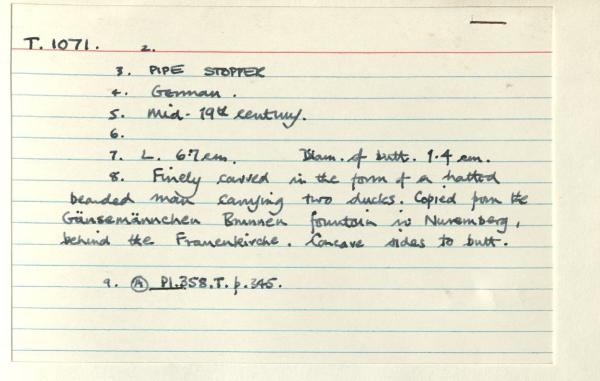 T. 1071. 2.
3. PIPE STOPPER
4. German.
5. Mid-19th century.
6.
7. L. 6.7 cm. Diam. of butt. 1.4 cm.
8. Finely carved in the form of a hatted
bearded man carrying two ducks. Copied from the
Gänsemännchen Brunnen fountain in Nuremberg,
behind the Frauenkirche. Concave sides to butt.
9. (A) Pl.358.T. p.345.